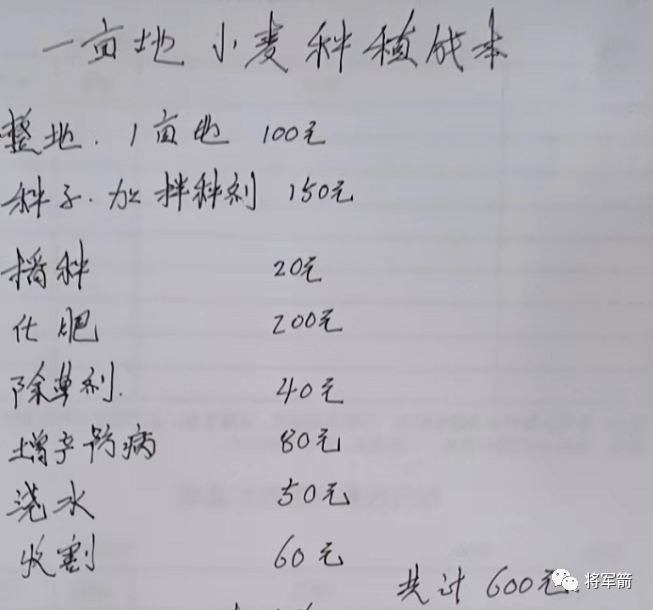 一亩地小麦种植成本
整地.1亩地 100元
种子.加拌种剂 150元
播种 20元
化肥 200元
除草剂. 40元
增产防病 80元
浇水 50元
收割 60元
共计600元.
将军箭